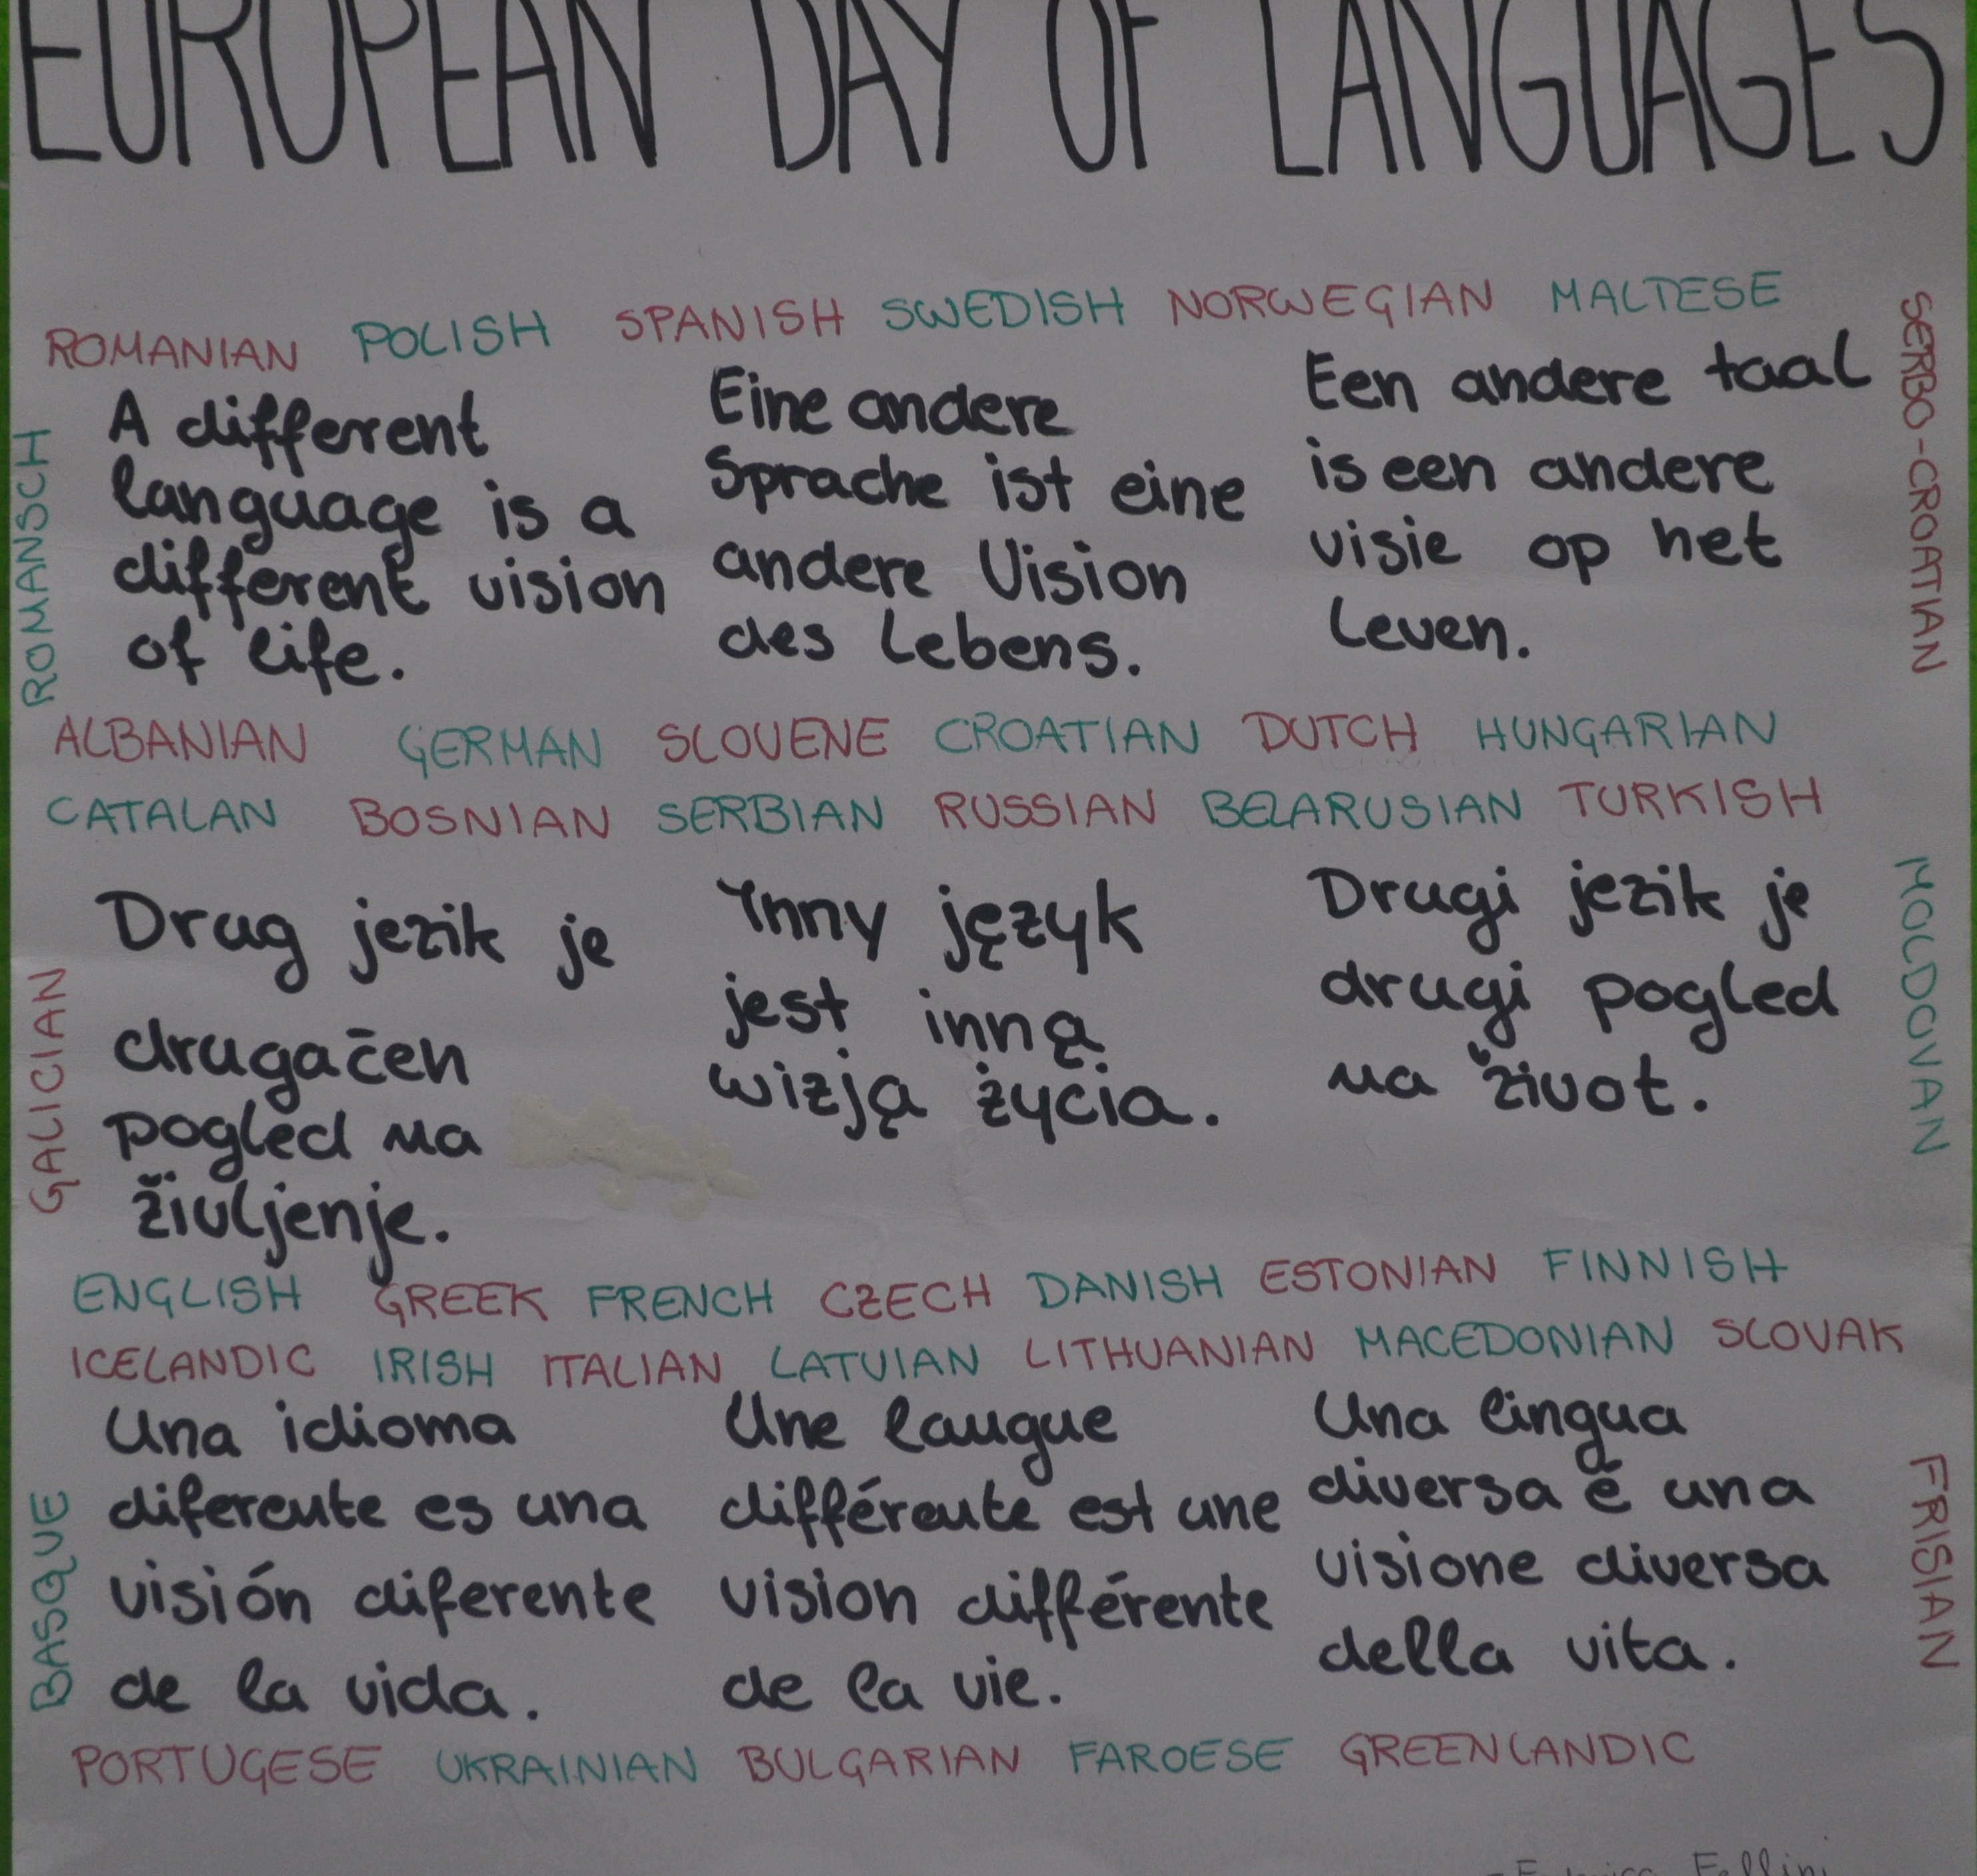 EUROPEAN DAY OF LANGUAGES
ROMANIAN POLISH SPANISH SWEDISH NORWEGIAN MALTESE
ROMANSCH
SERBO-CROATIAN
A different
language is a
different vision
of life.
Eine andere
Sprache ist eine
andere Vision
des Lebens.
Een andere taal
is een andere
visie op het
leven.
ALBANIAN GERMAN SLOVENE CROATIAN DUTCH HUNGARIAN
CATALAN BOSNIAN SERBIAN RUSSIAN BELARUSIAN TURKISH
GALICIAN
MOLDOVAN
Drug jezik je
drugačen
pogled na
življenje.
Inny język
jest inną
wizją życia.
Drugi jezik je
drugi pogled
na život.
ENGLISH GREEK FRENCH CZECH DANISH ESTONIAN FINNISH
ICELANDIC IRISH ITALIAN LATVIAN LITHUANIAN MACEDONIAN SLOVAK
BASQUE
FRISIAN
Una idioma
diferente es una
visión diferente
de la vida.
Une langue
différente est une
vision différente
de la vie.
Una lingua
diversa è una
visione diversa
della vita.
PORTUGESE UKRAINIAN BULGARIAN FAROESE GREENLANDIC
Fellini